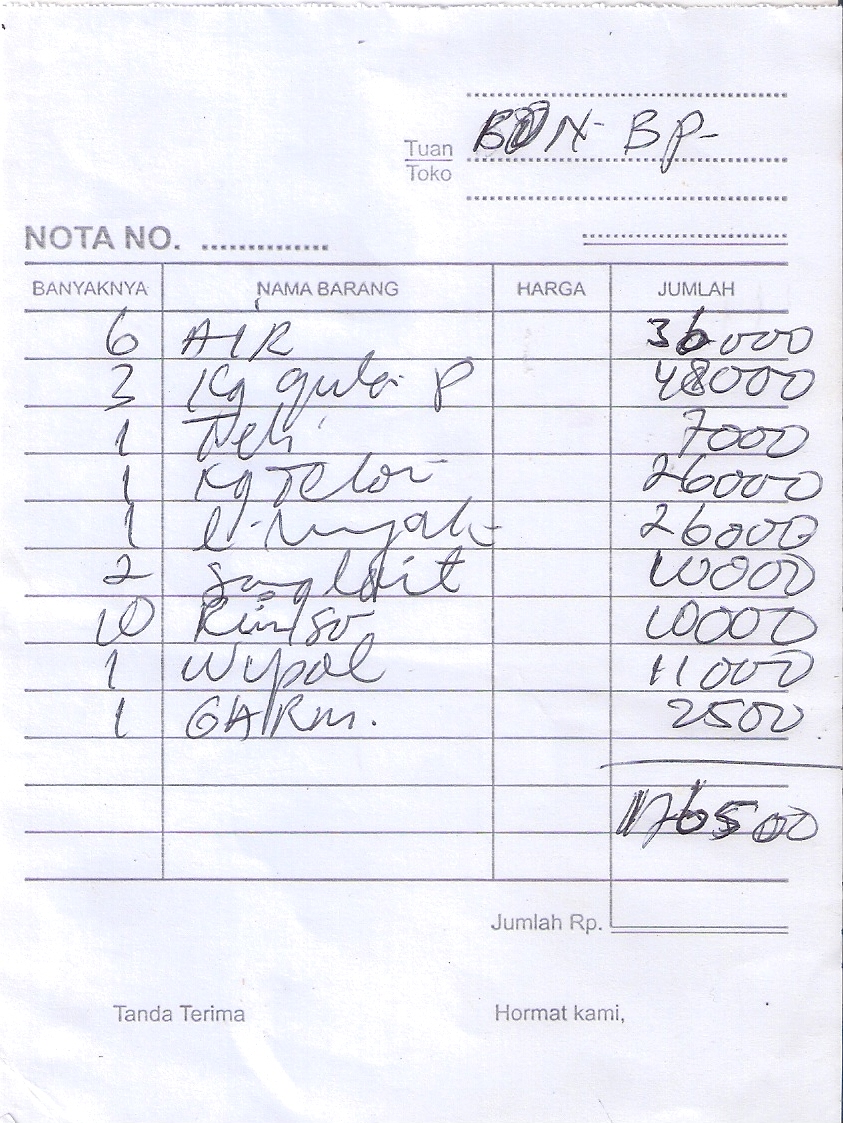 BON- BP-
Tuan
Toko
NOTA NO. ..............
BANYAKNYA NAMA BARANG HARGA JUMLAH
6 AIR 36000
3 Kg gula P 48000
1 Teh 7000
1 Kg Telor 26000
1 l- minyak 26000
2 sunglait 10000
10 Rinso 10000
1 Wypol 11000
1 GARM. 2500
176500
Jumlah Rp.
Tanda Terima Hormat kami,